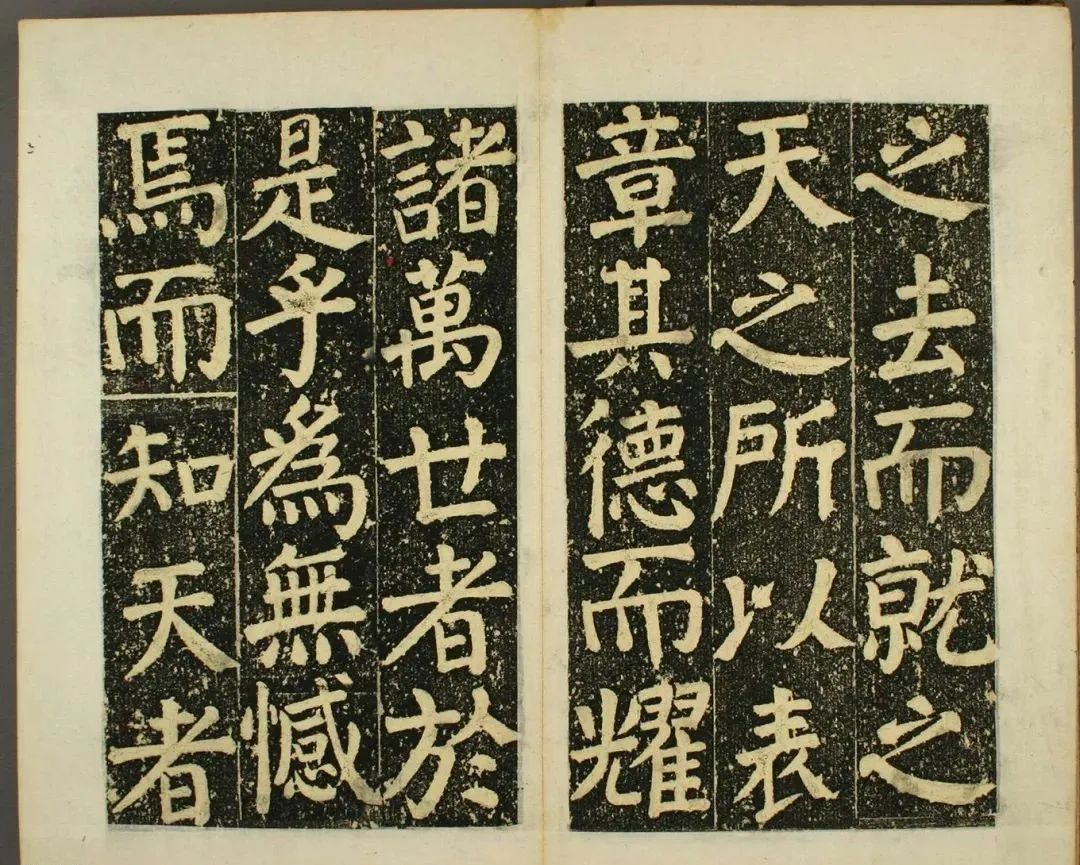 之去而就之
天之所以表
章其德而耀
諸萬世者於
是乎為無憾
焉而知天者